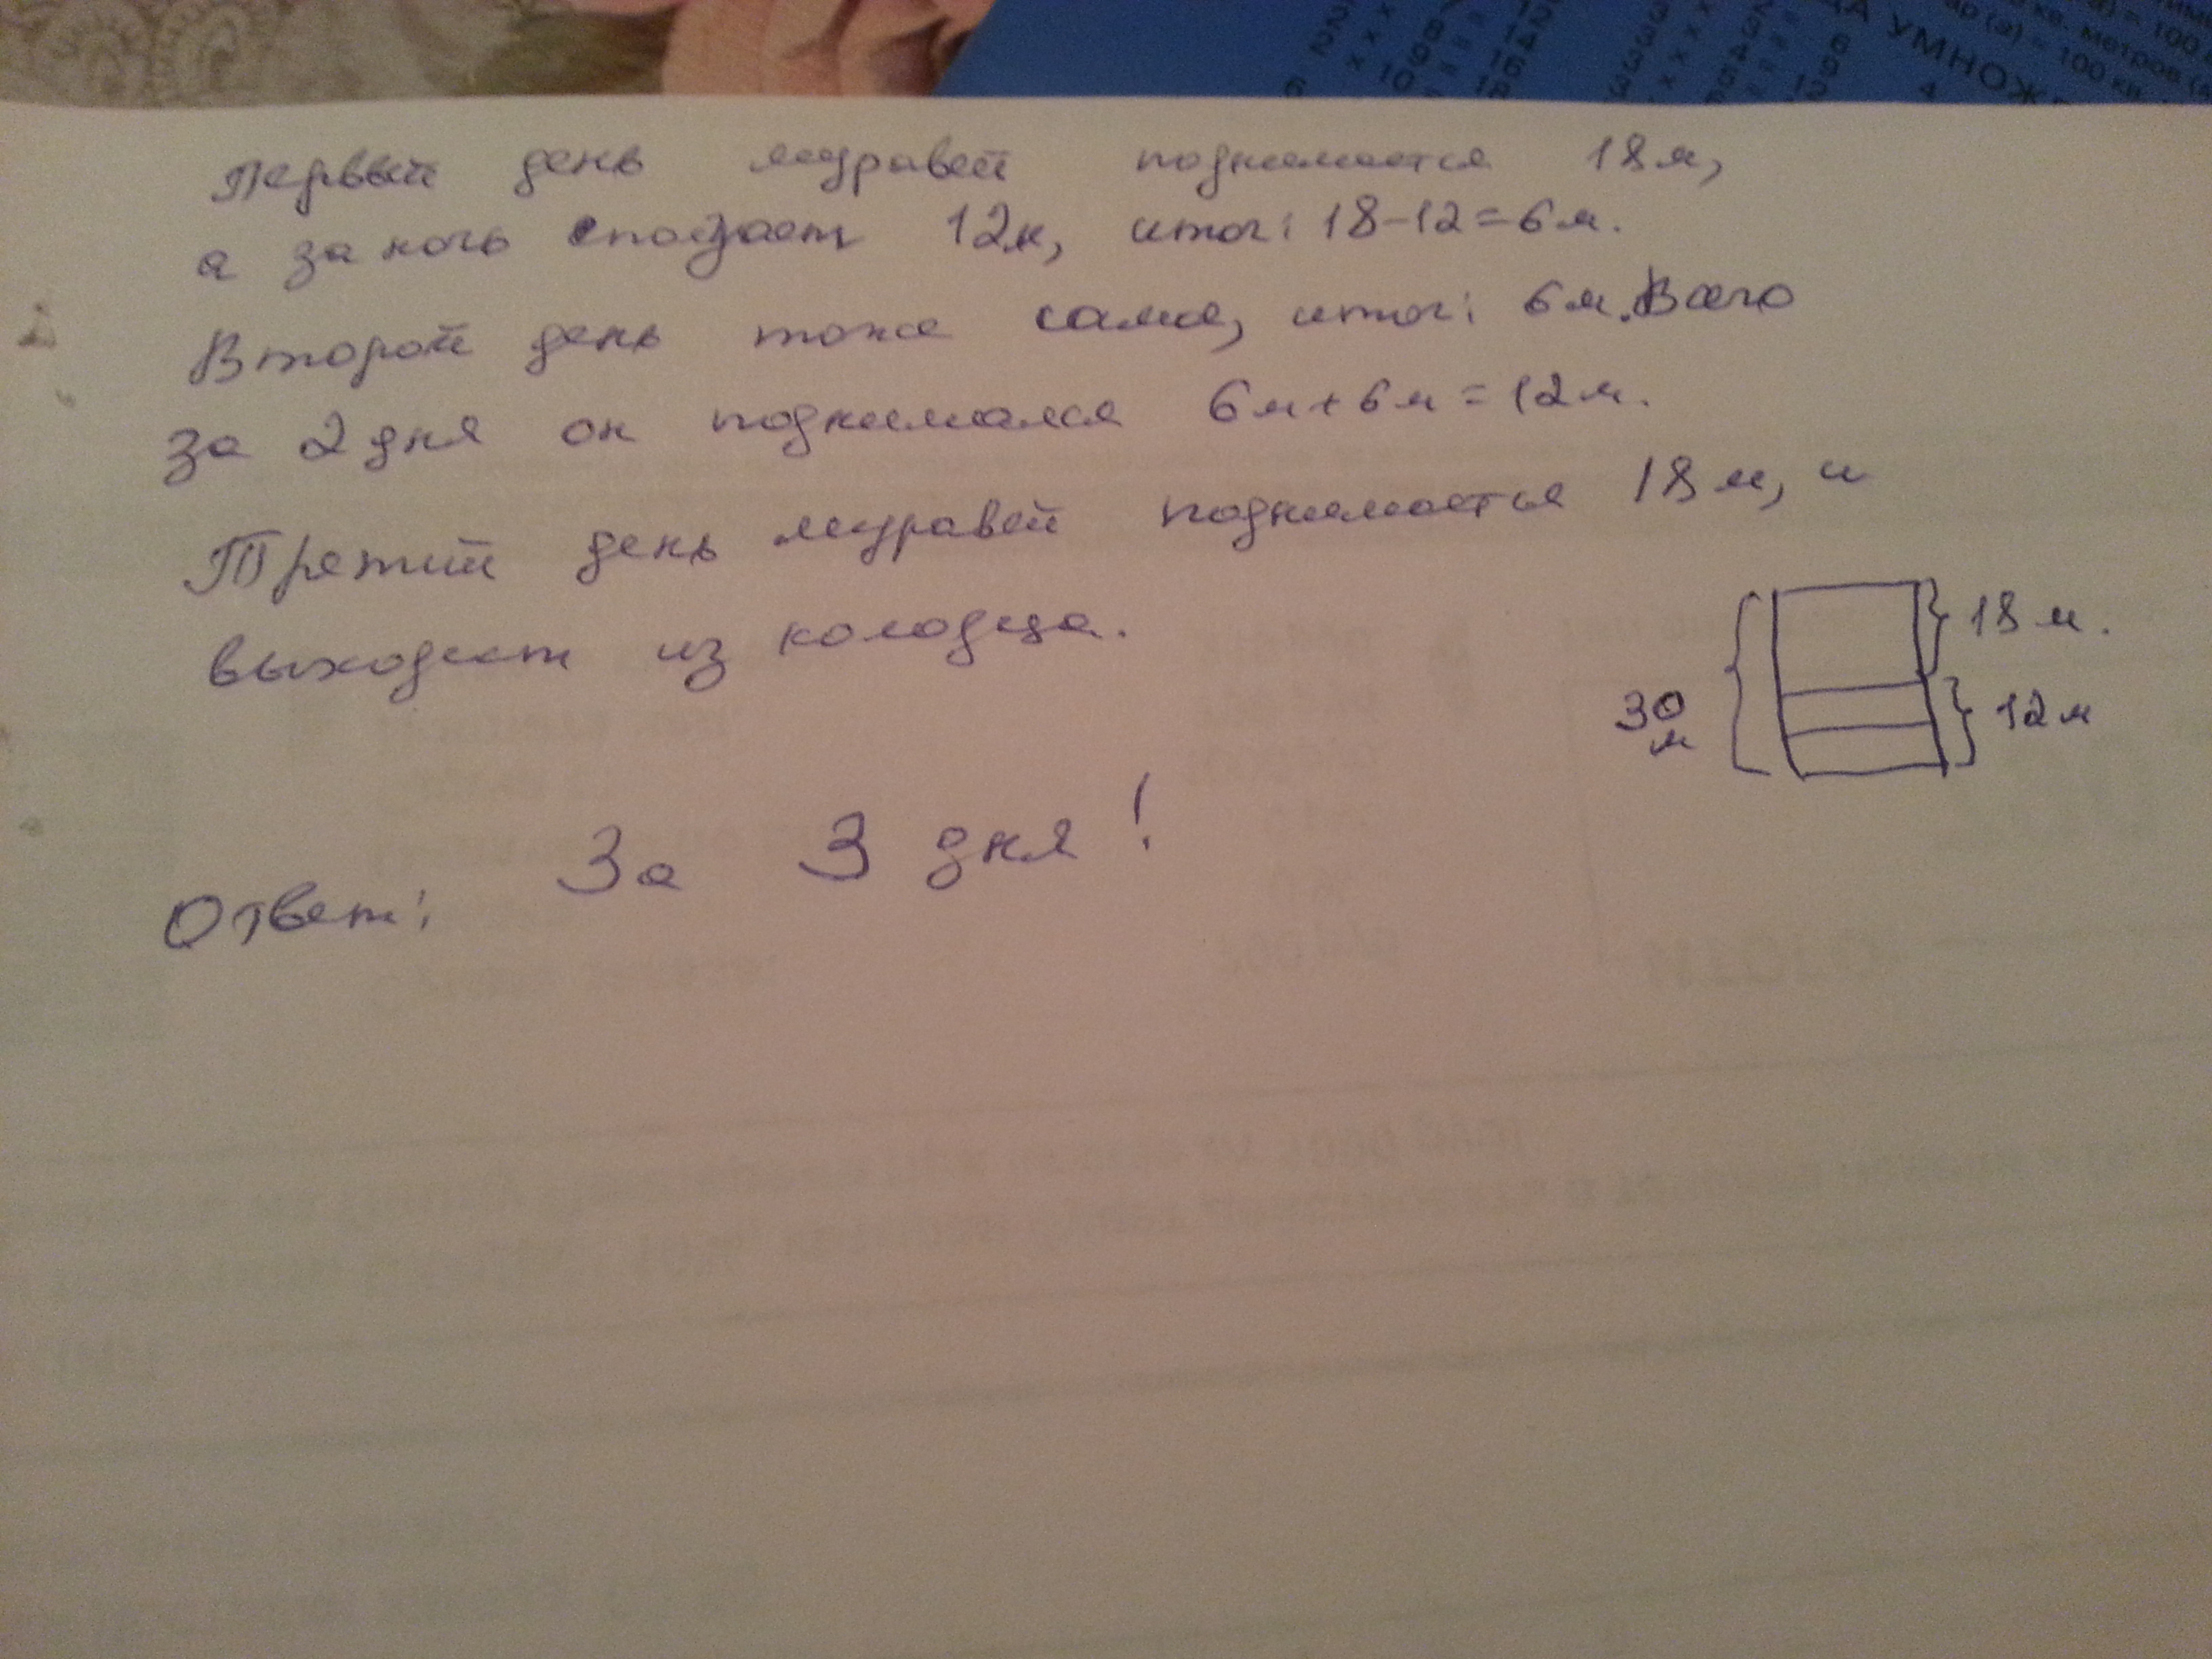 ЦА УМНОЖ
ар (а) = 100 кв.
кв. метров (а
) = 100
Первый день муравей поднимается 18м,
а за ночь сползает 12м, итог: 18-12=6м.
Второй день тоже самое, итог: 6м. Всего
за 2 дня он поднимался 6м+6м=12м.
Третий день муравей поднимается 18м, и
выходит из колодца.
18 м.
30
м
12 м
Ответ: За 3 дня!